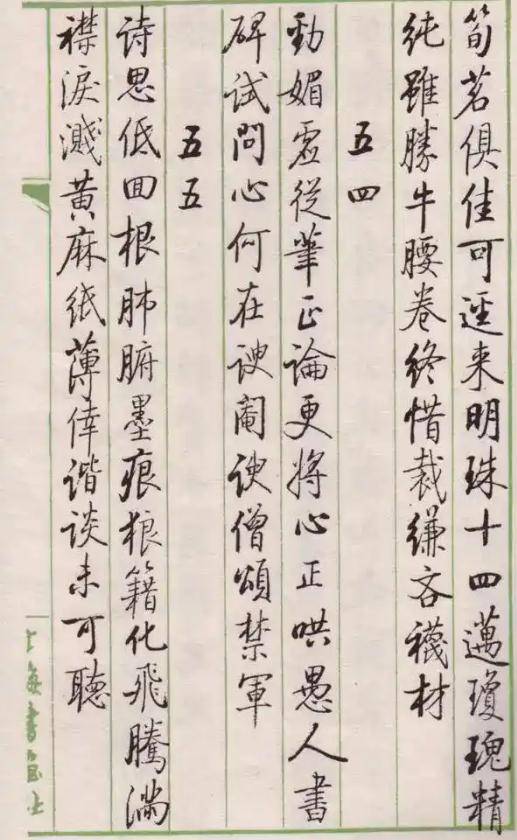 筍茗俱佳可迳来明珠十四邁瓊瑰精
純雖勝牛腰卷终惜裁缣吝襪材
五四
勁媚虚從筆正論更將心正哄愚人書
碑試問心何在諛阉諛僧頌禁軍
五五
诗思低回根肺腑墨痕狼籍化飛騰満
襟淚濺黄麻紙薄倖谐谈未可聽
上海書画社